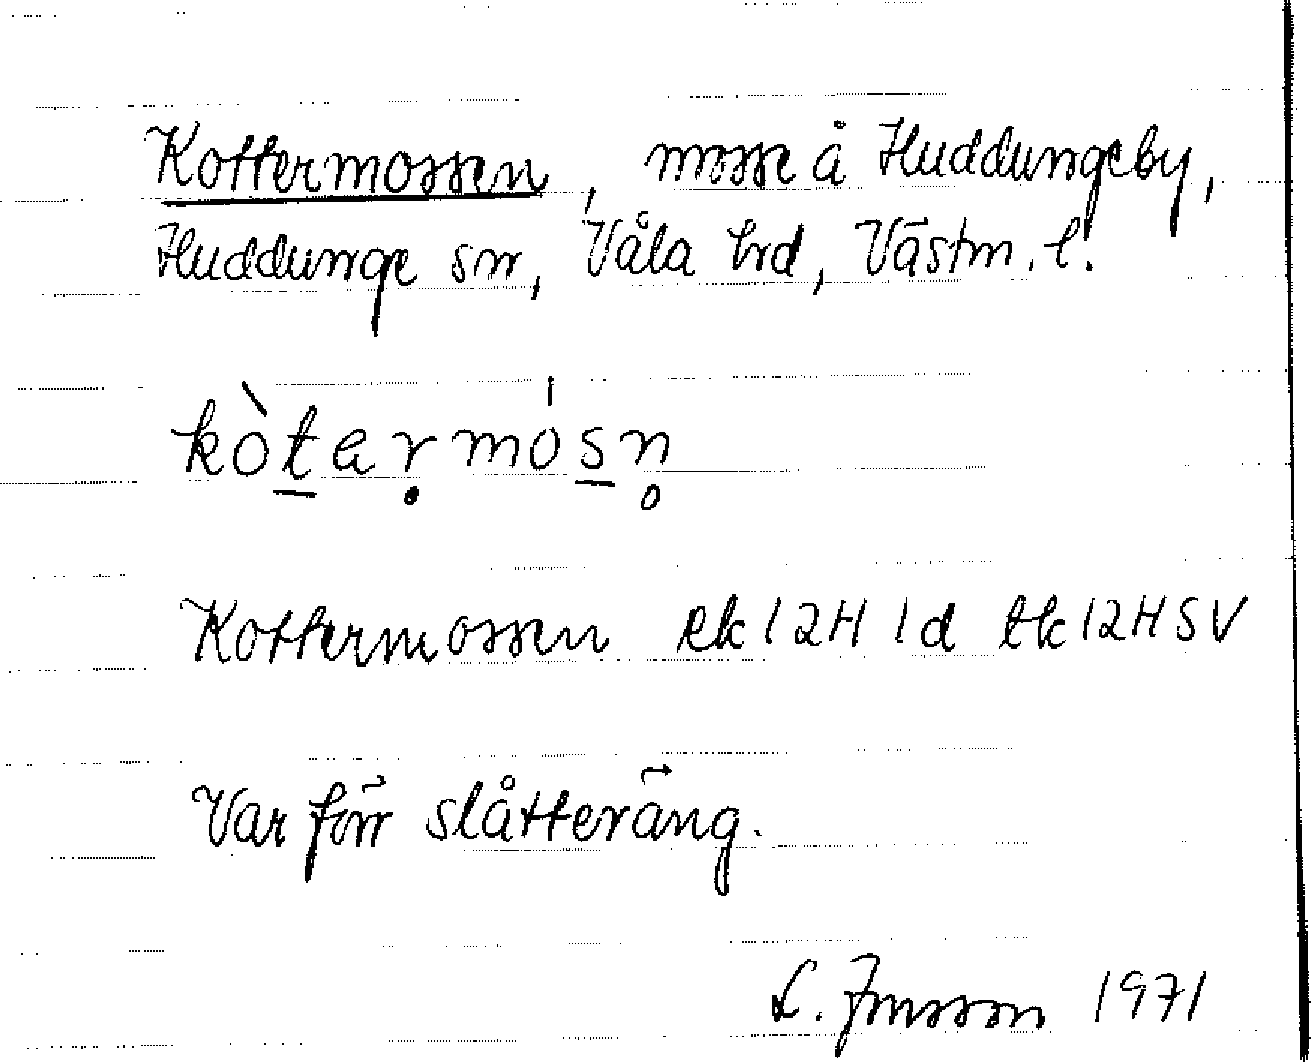 Kottermossen, mosse å Huddungeby,
Huddunge sn, Våla hrd, Västm. l.
kòtermósn
Kottermossen ek 12H 1d tk 12H SV
Var förr slåtteräng.
L. Jonsson 1971